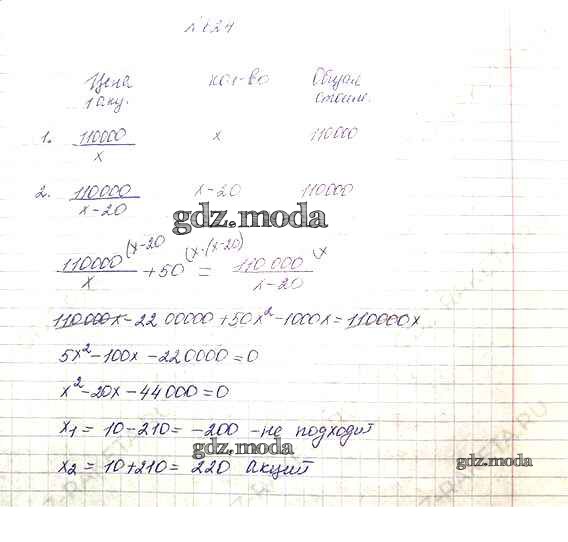 № 124
Цена 1 акц. кол-во Общая стоим.
1. 110000/x x 110000
2. 110000/x-20 x-20 110000
gdz.moda
110000/x (x-20 + 50 (x·(x-20) = 110000/x-20 (x
110000x-2200000+50x²-1000x=110000x
5x²-100x-220000=0
x²-20x-44000=0
x₁ = 10-210= -200 -не подходит
gdz.moda
x₂ = 10+210= 220 акций
gdz.moda